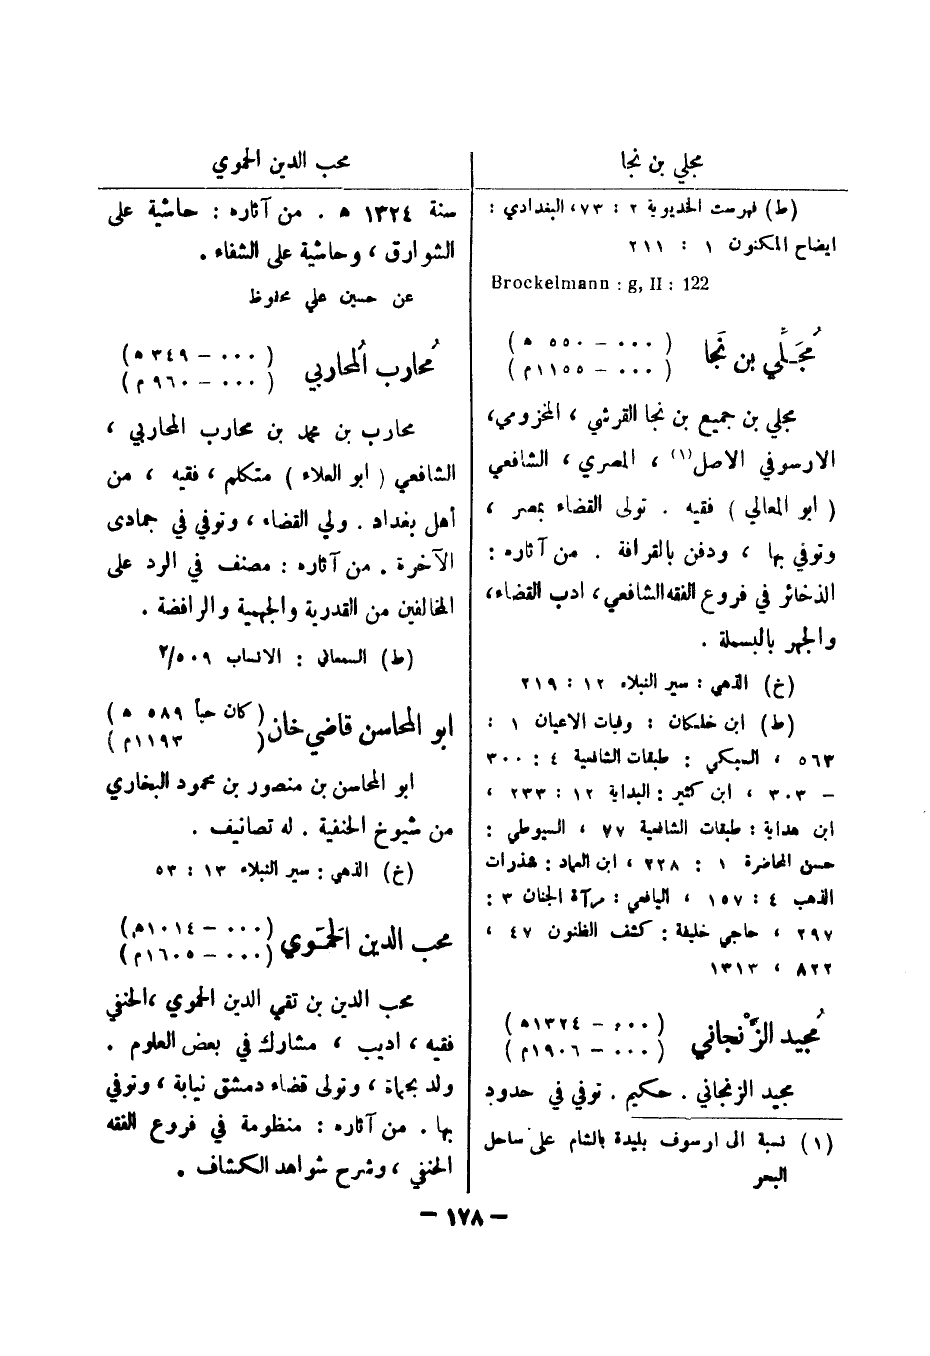 مجلي بن نجا
(ط) فهرست الخديوية ٢ : ٧٣، البغدادي :
ايضاح المكنون ١ : ٢١١
Brockelmann : g, II : 122
مُجَلِّي بن نَجا (٠٠٠ – ٥٥٠ ه)
(٠٠٠ – ١١٥٥م)
مجلي بن جميع بن نجا القرشي ، المخزومي،
الارسوفي الاصل(١) ، المصري ، الشافعي
( ابو المعالي ) فقيه . تولى القضاء بمصر ،
وتوفي بها ، ودفن بالقرافة . من آثاره :
الذخائر في فروع الفقه الشافعي ، ادب القضاء،
والجهر بالبسملة .
(خ) الذهبي : سير النبلاء ١٢ : ٢١٩
(ط) ابن خلكان : وفيات الاعيان ١ :
٥٦٣ ، السبكي : طبقات الشافعية ٤ : ٣٠٠
– ٣٠٣ ، ابن كثير : البداية ١٢ : ٢٣٣ ،
ابن هداية : طبقات الشافعية ٧٧ ، السيوطي :
حسن المحاضرة ١ : ٢٢٨ ، ابن العماد : شذرات
الذهب ٤ : ١٥٧ ، اليافعي : مرآة الجنان ٣ :
٢٩٧ ، حاجي خليفة : كشف الظنون ٤٧ ،
٨٢٢ ، ١٣١٣
مُجيد الزَّنْجاني (٠٠٠ – ١٣٢٤ه)
(٠٠٠ – ١٩٠٦م)
مجيد الزنجاني . حكيم . توفي في حدود
(١) نسبة الى ارسوف بليدة بالشام على ساحل
البحر
محب الدين الحموي
سنة ١٣٢٤ ه . من آثاره : حاشية على
الشوارق ، وحاشية على الشفاء .
عن حسين علي محفوظ
مُحارب المُحاربي (٠٠٠ – ٣٤٩ ه)
(٠٠٠ – ٩٦٠ م)
محارب بن محمد بن محارب المحاربي ،
الشافعي ( ابو العلاء ) متكلم ، فقيه ، من
أهل بغداد . ولي القضاء ، وتوفي في جمادى
الآخرة . من آثاره : مصنف في الرد على
المخالفين من القدرية والجهمية والرافضة .
(ط) السمعاني : الانساب ٥٠٩/٢
ابو المحاسن قاضي خان (كان حياً ٥٨٩ ه)
( ١١٩٣م)
ابو المحاسن بن منصور بن محمود البخاري
من شيوخ الحنفية . له تصانيف .
(خ) الذهبي : سير النبلاء ١٣ : ٥٣
محب الدين الحَمَوي (٠٠٠ – ١٠١٤ه)
(٠٠٠ – ١٦٠٥م)
محب الدين بن تقي الدين الحموي ،الحنفي
فقيه ، اديب ، مشارك في بعض العلوم .
ولد بحماة ، وتولى قضاء دمشق نيابة ، وتوفي
بها . من آثاره : منظومة في فروع الفقه
الحنفي ، وشرح شواهد الكشاف .
– ١٧٨ –